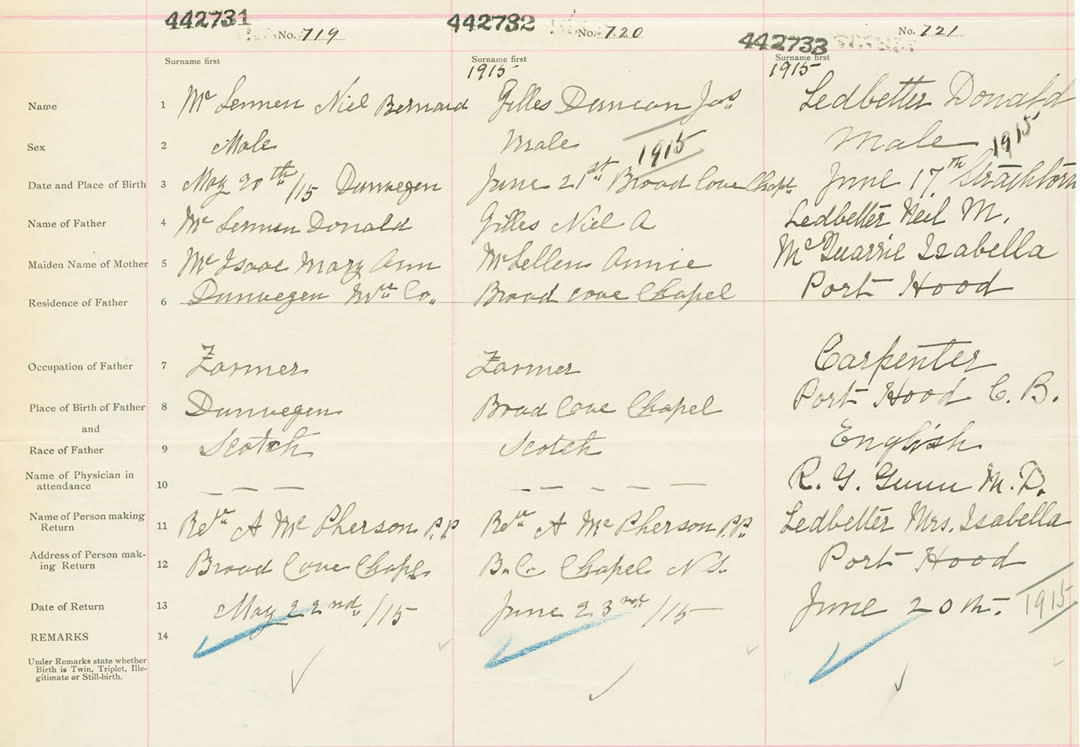 442731 442732 442733
No. 719 No. 720 No. 721
Surname first Surname first Surname first
1915 1915
Name 1 Mc Lennen Niel Bernard Gilles Duncan Jos Ledbetter Donald
Sex 2 Male Male 1915 Male 1915
Date and Place of Birth 3 May 20th/15 Dunvegen June 21st. Broad Cove Chapl. June 17th Strathlorn
Name of Father 4 Mc Lennen Donald Gilles Niel A Ledbetter Neil M.
Maiden Name of Mother 5 Mc Isaac Mary Ann McLellen Annie McQuarrie Isabella
Residence of Father 6 Dunvegen Inv. Co. Broad cove Chapel Port Hood
Occupation of Father 7 Farmer Farmer Carpenter
Place of Birth of Father 8 Dunvegen Broad Cove Chapel Port Hood C. B.
and
Race of Father 9 Scotch Scotch English
Name of Physician in
attendance 10 — — — — — — — — — R. G. Gunn M. D.
Name of Person making
Return 11 Revd. A Mc Pherson P.P Revd. A Mc Pherson P.P. Ledbetter Mrs. Isabella
Address of Person mak-
ing Return 12 Broad Cove Chapl. B.C. Chapel N.S. Port Hood
Date of Return 13 May 22nd./15 June 23rd/15 June 20th. 1915
REMARKS 14
Under Remarks state whether
Birth is Twin, Triplet, Ille-
gitimate or Still-birth.